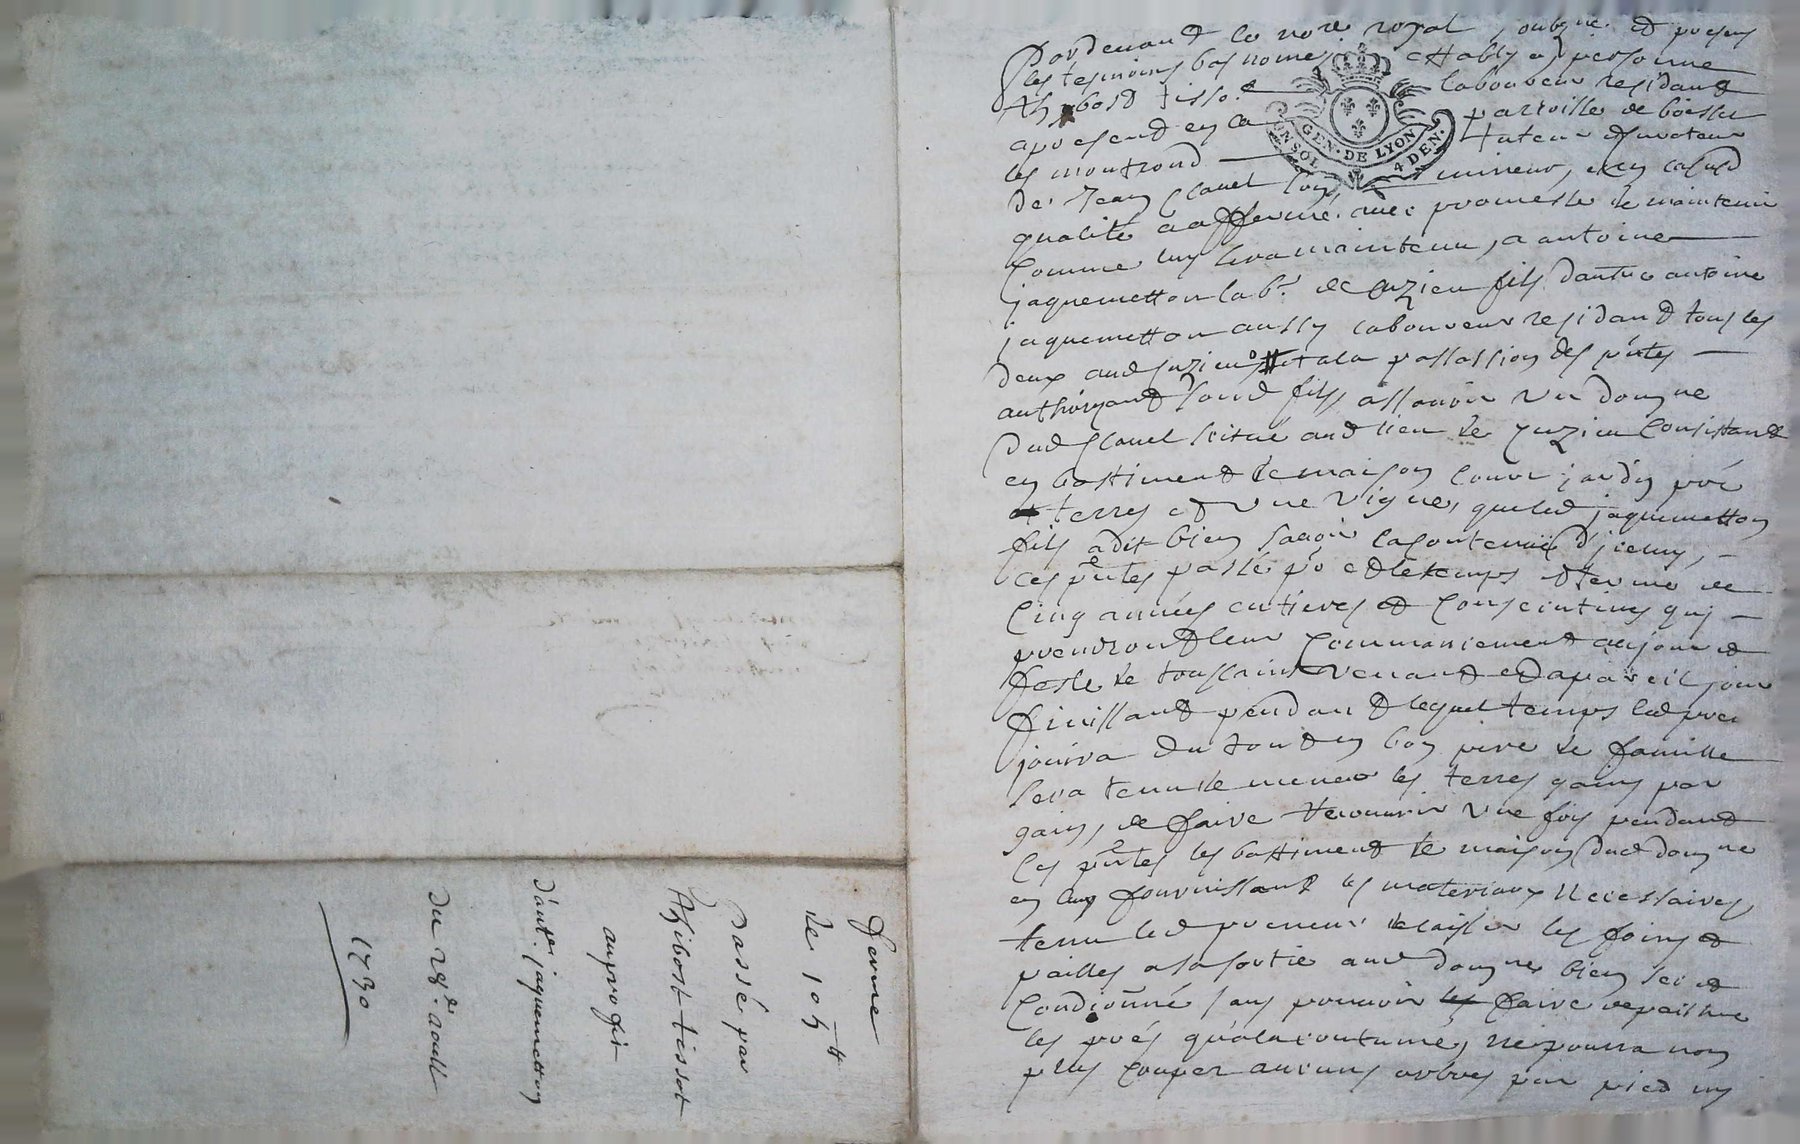 Pardevant le no.re royal soubz.né et presens
les tesmoins bas només estably en personne
Thybost tissot laboureur residant
apresent en la parroisse de boisset
les montrond tuteur et curateur
de Jean Clauel son mineur, et en cas et d
qualité a affermé avec promesse de maintenir
comme luy sera maintenu, a antoine
jaquemetton lab.r de Cuzieu fils dautre antoine
jaquemetton aussy laboureur residant tous les
deux aud Cuzieu et ala passassion des p.ntes
authorizant sond fils assavoir un domgne
dud Clauel scitué aud lieu de Cuzieu consistant
en bastiment de maison cour jardin pré
terres et une vigne, que led jaquemetton
fils a dit bien savoir la contenüe d'jceluy,
ces p.ntes passé po.r et le temps et terme de
cinq années entieres et consecutives qui
prendront leur commancement au jour et
feste de toussaint venant et a pareil jour
finissant pendant lequel temps led pre.r
jouira du tout en bon pere de famille
sera tenu de mener les terres gains par
gains, de faire recouvrir une fois pendant
ces p.ntes les bastiment de maison dud domgne
en luy fournissant les materiaux necessaires,
tenu led preneur delaisser les foins et
pailles a la sortie aud domgne bien sec et
condionné sans pouvoir faire repaistre
les prés qu'a la coutume, ne pourra non
plus couper aucuns arbres par pied ny
GEN. DE LYON
UN SOL
4 DEN.
ferme
de 105 ₶
Passé par
Thibost tissot
au profit
d'ant.e jaquemetton
du 28.e aoust
1730